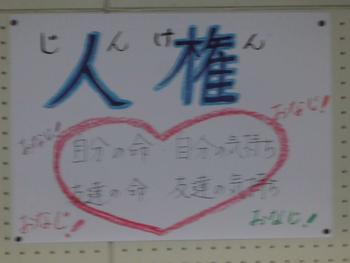 じんけん
人権
おなじ!
おなじ!
自分の命 自分の気持ち
友達の命 友達の気持ち
おなじ!
おなじ!